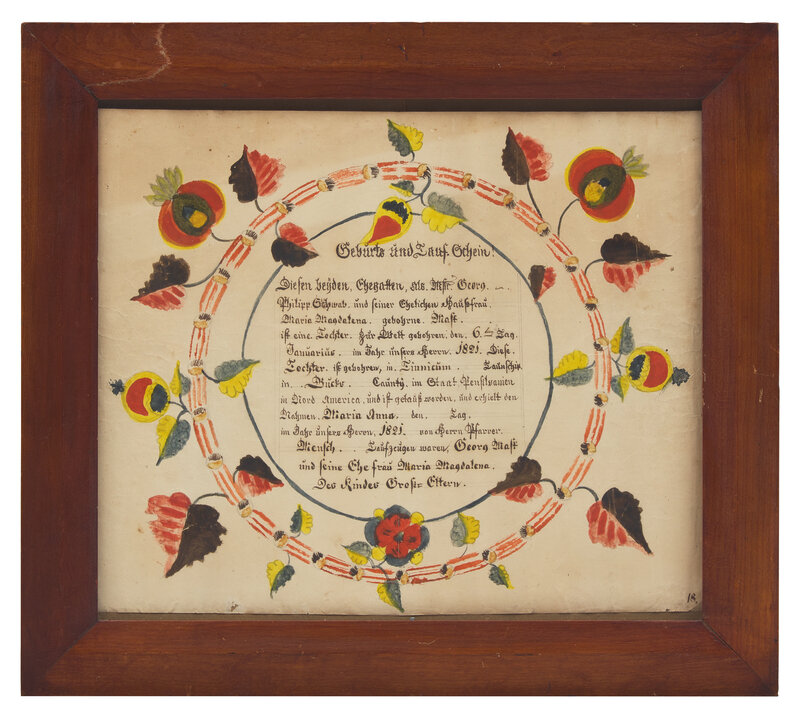 Geburts und Tauf Schein:
Diesen beyden, Ehegatten, als. Georg.
Philipp Schwab. und seiner Ehelichen Haußfrau.
Maria Magdalena. gebohrne. Mast.
ist eine. Tochter. Zur Welt gebohren, den. 6.ten Tag.
Januarius. im Jahr unsers Herrn. 1821. Diese.
Tochter. ist gebohren, in. Tinnicum. Taunschip.
in. Bucks. Caunty, im Staat Pensilvanien
in Nord America, und ist getauft worden, und erhielt den
Nahmen. Maria Anna. den. Tag.
im Jahr unsers Herrn, 1821. von Herrn Pfarrer.
Mensch. Taufzeugen waren, Georg Mast
und seine Ehe frau Maria Magdalena.
Des Kindes Groß= Eltern.
18.